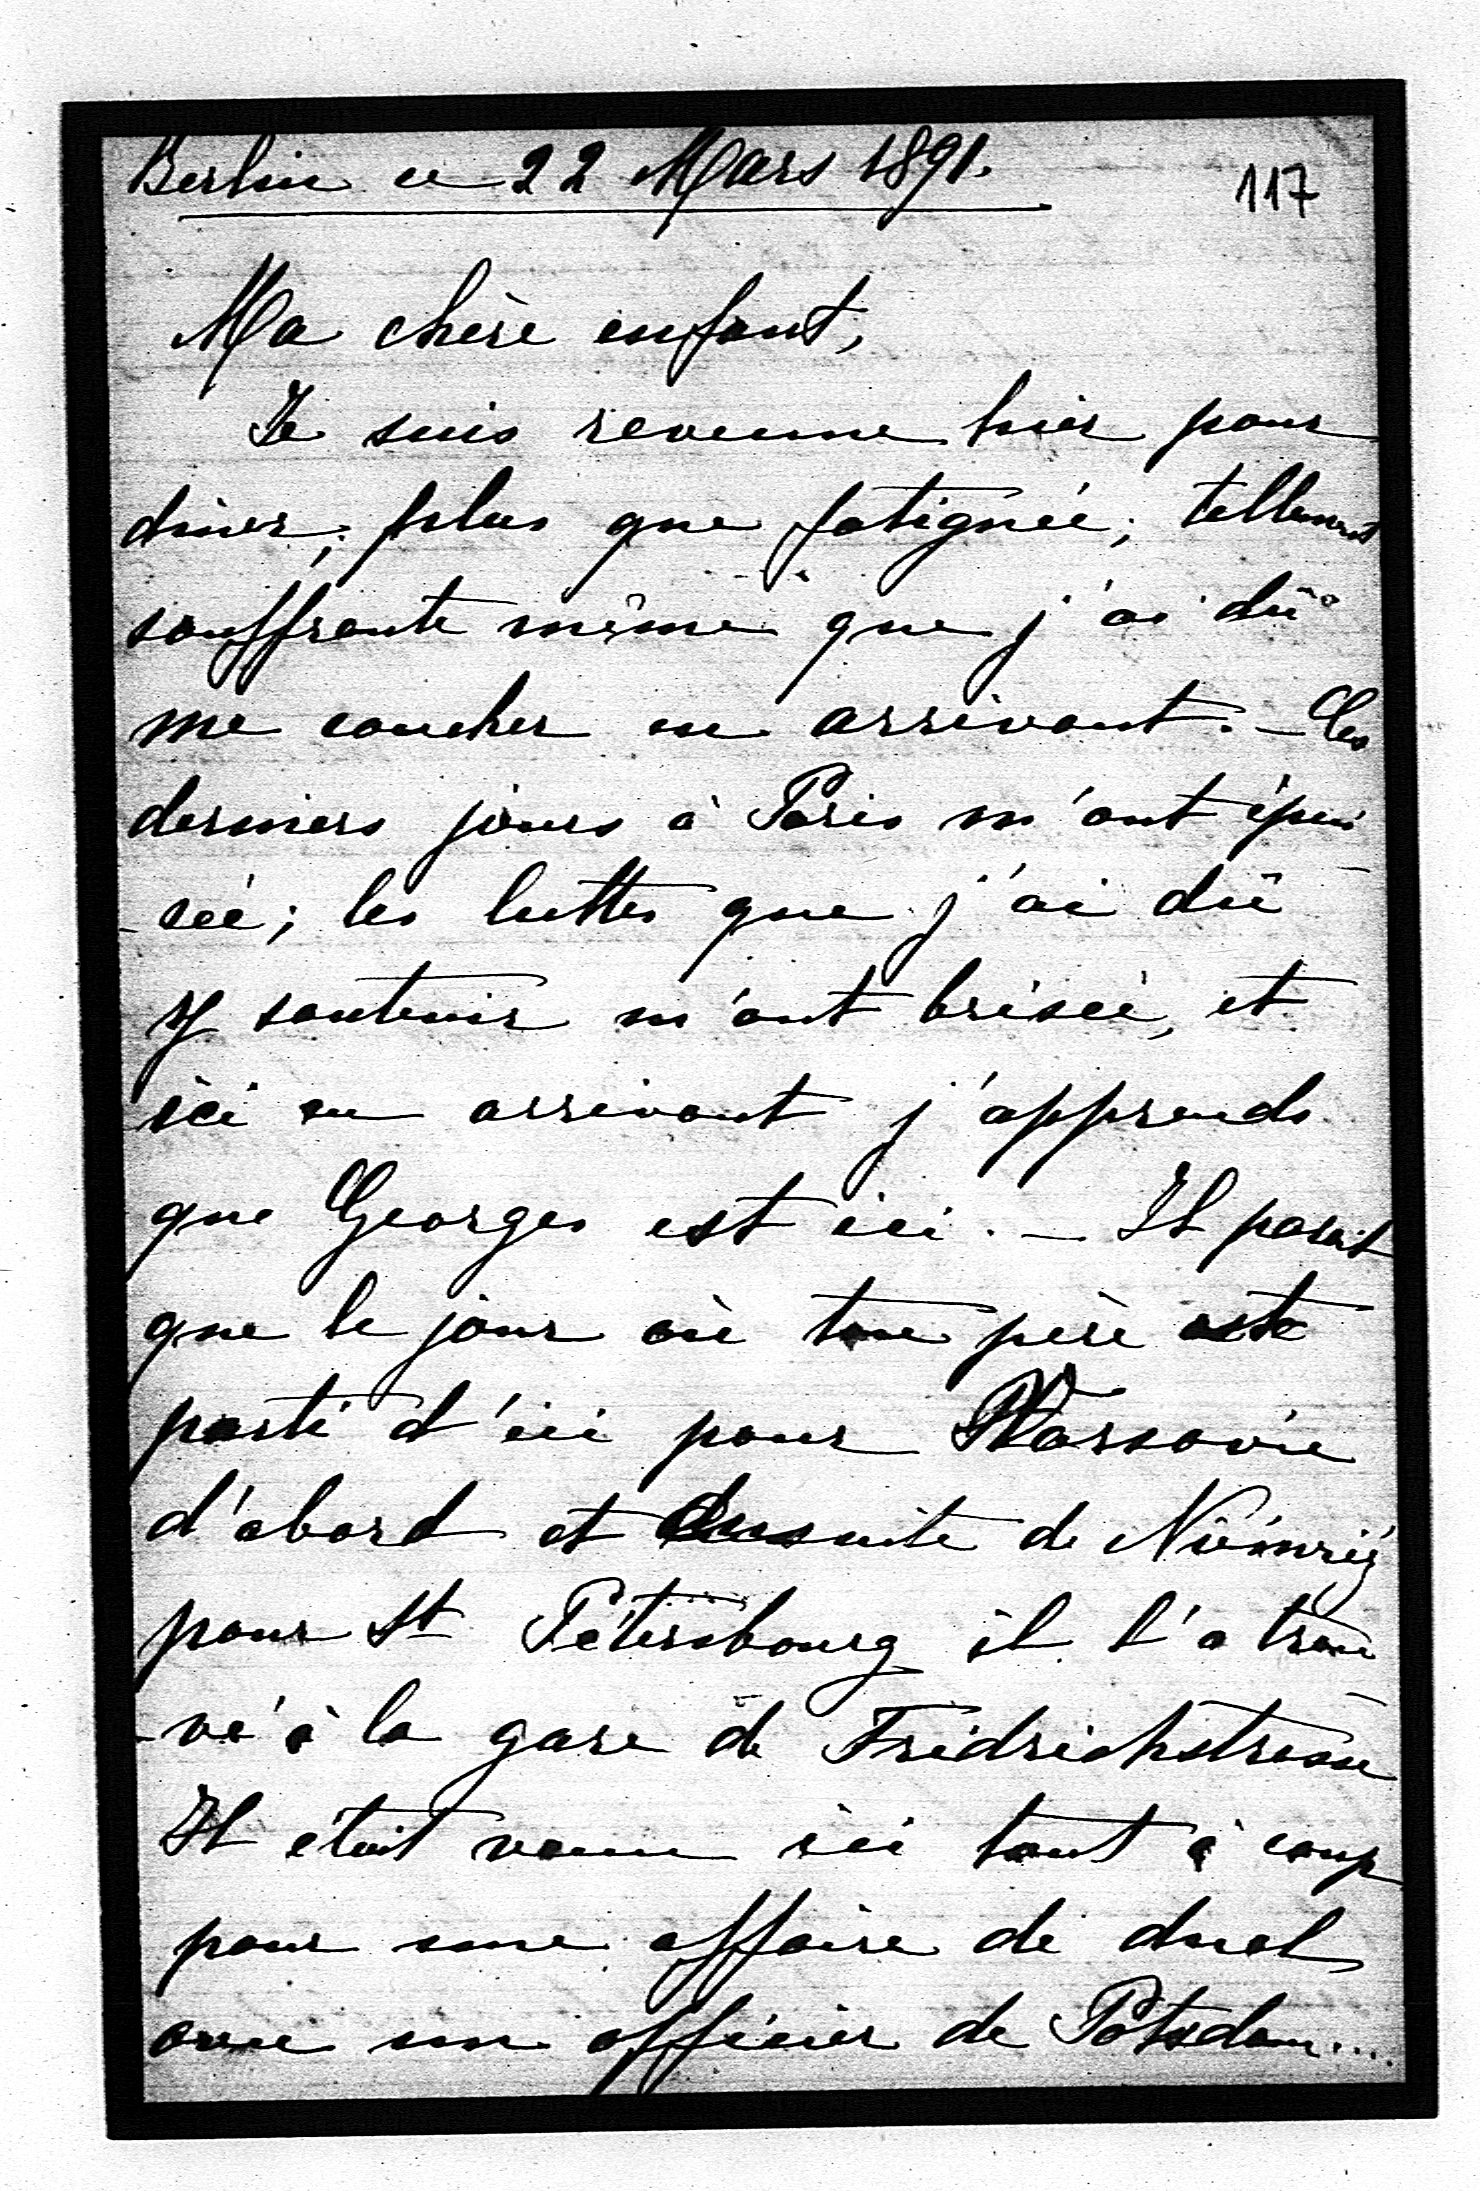 Berlin ce 22 Mars 1891.
117
Ma chère enfant,
Je suis revenue hier pour
dîner; plus que fatiguée; tellement
souffrante même que j'ai dû
me coucher en arrivant. – Ces
derniers jours à Paris m'ont épui
-sée; les luttes que j'ai dû
y soutenir m'ont brisée, et
ici en arrivant j'apprends
que Georges est ici. – Il parait
que le jour où ton père est
parti d'ici pour Warsovie
d'abord et ensuite de Niéswiéz
pour St Pétersbourg il l'a trou
-vé à la gare de Fridrichstrasse
Il était venu ici tout à coup
pour une affaire de duel
avec un officier de Potsdam....